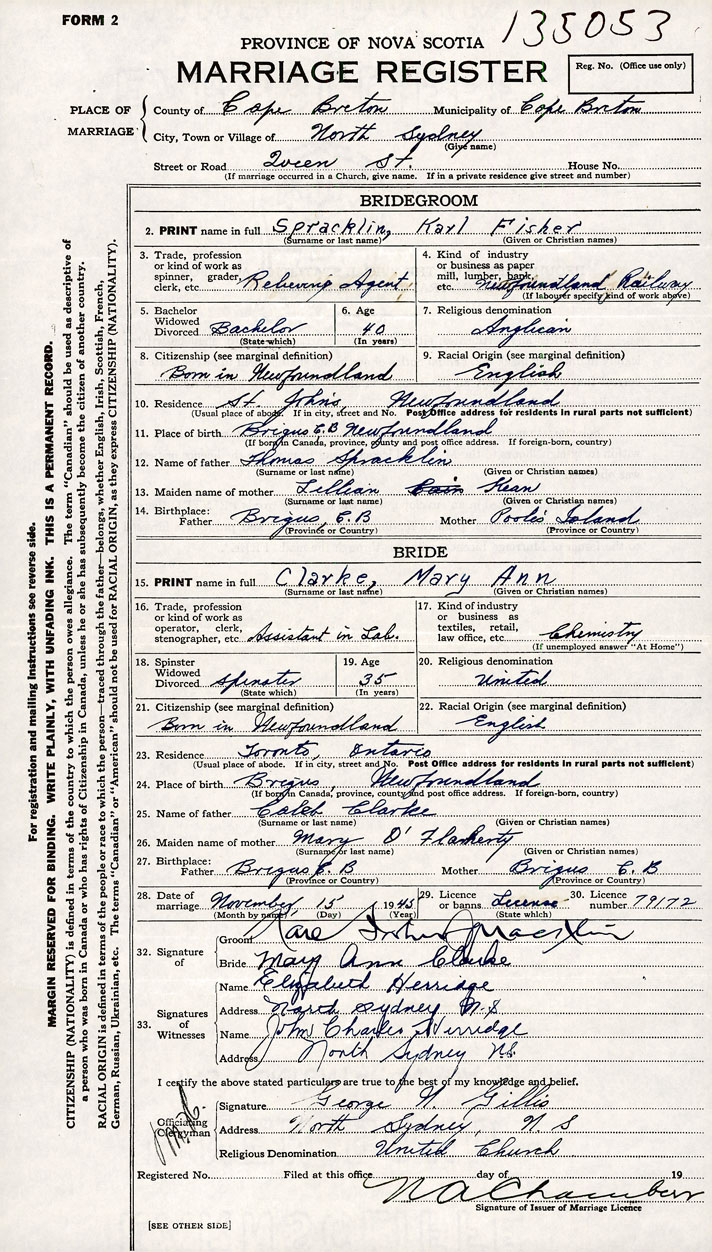 FORM 2
135053
PROVINCE OF NOVA SCOTIA
MARRIAGE REGISTER
Reg. No. (Office use only)
PLACE OF MARRIAGE
County of Cape Breton Municipality of Cape Breton
City, Town or Village of North Sydney
(Give name)
Street or Road Queen St. House No.
(If marriage occurred in a Church, give name. If in a private residence give street and number)
BRIDEGROOM
2. PRINT name in full Spracklin, Karl Fisher
(Surname or last name) (Given or Christian names)
3. Trade, profession or kind of work as spinner, grader, clerk, etc. Relieving Agent
4. Kind of industry or business as paper mill, lumber, bank, etc. Newfoundland Railway
(If labourer specify kind of work above)
5. Bachelor Widowed Divorced Bachelor
(State which)
6. Age 40
(In years)
7. Religious denomination
Anglican
8. Citizenship (see marginal definition)
Born in Newfoundland
9. Racial Origin (see marginal definition)
English
10. Residence St. John's, Newfoundland
(Usual place of abode. If in city, street and No. Post Office address for residents in rural parts not sufficient)
11. Place of birth Brigus C.B Newfoundland
(If born in Canada, province, county and post office address. If foreign-born, country)
12. Name of father Thomas Spracklin
(Surname or last name) (Given or Christian names)
13. Maiden name of mother Lillian Kean
(Surname or last name) (Given or Christian names)
14. Birthplace: Father Brigus, C.B Mother Pool's Island
(Province or Country) (Province or Country)
BRIDE
15. PRINT name in full Clarke, Mary Ann
(Surname or last name) (Given or Christian names)
16. Trade, profession or kind of work as operator, clerk, stenographer, etc. Assistant in Lab.
17. Kind of industry or business as textiles, retail, law office, etc. Chemistry
(If unemployed answer "At Home")
18. Spinster Widowed Divorced Spinster
(State which)
19. Age 35
(In years)
20. Religious denomination
United
21. Citizenship (see marginal definition)
Born in Newfoundland
22. Racial Origin (see marginal definition)
English
23. Residence Toronto, Ontario
(Usual place of abode. If in city, street and No. Post Office address for residents in rural parts not sufficient)
24. Place of birth Brigus, Newfoundland
(If born in Canada, province, county and post office address. If foreign-born, country)
25. Name of father Caleb Clarke
(Surname or last name) (Given or Christian names)
26. Maiden name of mother Mary O'Flaherty
(Surname or last name) (Given or Christian names)
27. Birthplace: Father Brigus C.B Mother Brigus C.B
(Province or Country) (Province or Country)
28. Date of marriage November, 15 1945
(Month by name) (Day) (Year)
29. Licence or banns License
(State which)
30. Licence number 79172
32. Signature of
Groom Karl Fisher Spracklin
Bride Mary Ann Clarke
33. Signatures of Witnesses
Name Elizabeth Herridge
Address North Sydney N.S
Name John Charles Herridge
Address North Sydney N.S.
I certify the above stated particulars are true to the best of my knowledge and belief.
Officiating Clergyman
Signature George N. Gillis
Address North Sydney, N S
Religious Denomination United Church
Registered No. Filed at this office day of 19
N A Chambers
Signature of Issuer of Marriage Licence
[SEE OTHER SIDE]
For registration and mailing instructions see reverse side.
MARGIN RESERVED FOR BINDING. WRITE PLAINLY, WITH UNFADING INK. THIS IS A PERMANENT RECORD.
CITIZENSHIP (NATIONALITY) is defined in terms of the country to which the person owes allegiance. The term "Canadian" should be used as descriptive of
a person who was born in Canada or who has rights of Citizenship in Canada, unless he or she has subsequently become the citizen of another country.
RACIAL ORIGIN is defined in terms of the people or race to which the person—traced through the father—belongs, whether English, Irish, Scottish, French,
German, Russian, Ukrainian, etc. The terms "Canadian" or "American" should not be used for RACIAL ORIGIN, as they express CITIZENSHIP (NATIONALITY).